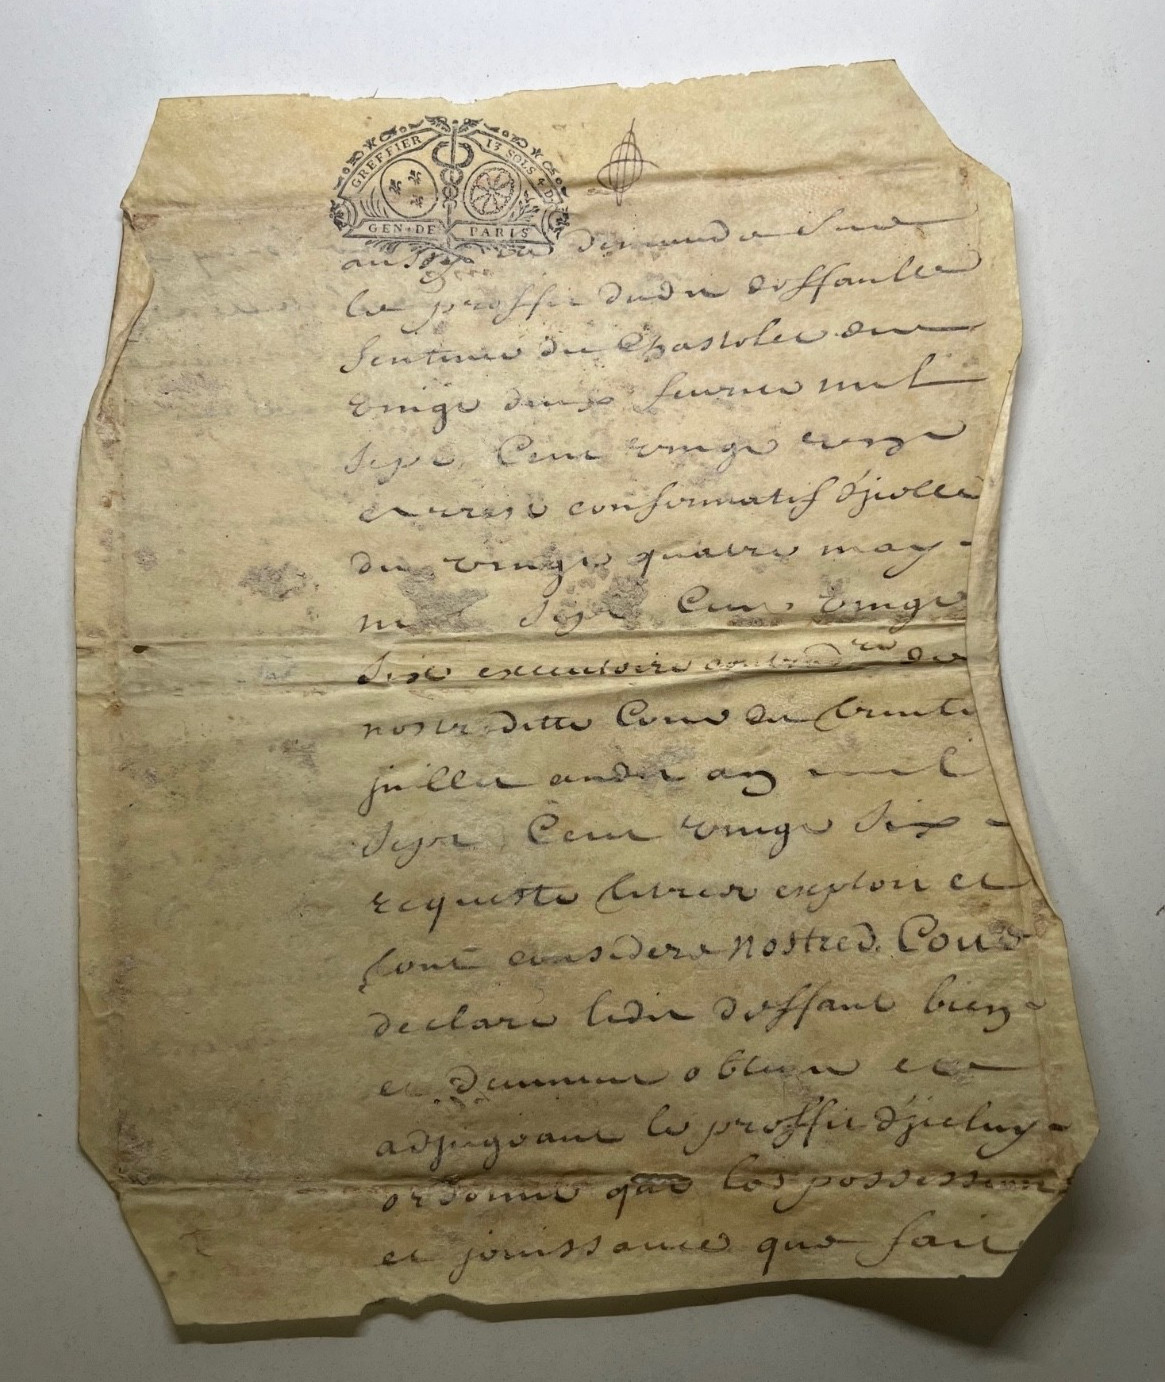 GREFFIER 13 SOLS 4 D
GEN · DE PARIS
demande sur
le proffit dudit deffault
Sentence du Chastelet du
vingt deux fevrier mil
Sept Cent vingt
arrest confirmatif d'jcelle
du vingt quatre may
mil Sept Cent vingt
Six executoire de
nostreditte Cour du trente
juillet audit an mil
Sept Cent vingt Six
requeste lettres exploit et
tout consideré nostred. Cour
declare ledit deffaut bien
et deuement obtenu et
adjugeant le proffit d'jceluy
ordonne que les possession
et jouissance que fait